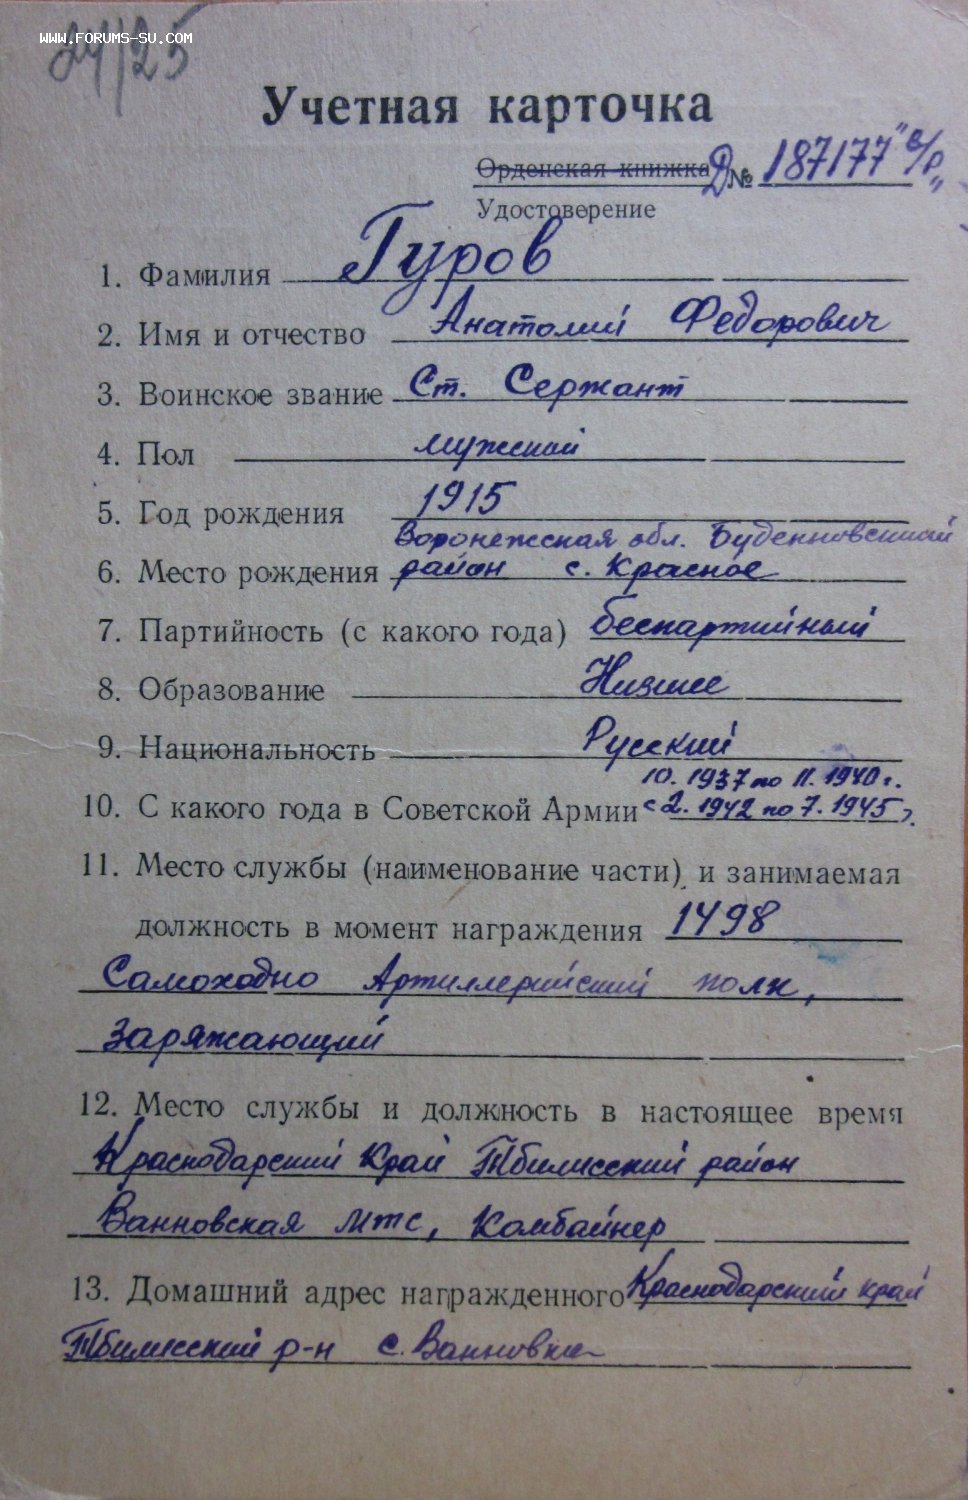 WWW.FORUMS-SU.COM
24/25
Учетная карточка
Орденская книжка Д № 187177 "б/р"
Удостоверение
1. Фамилия Гуров
2. Имя и отчество Анатолий Федорович
3. Воинское звание Ст. Сержант
4. Пол мужской
5. Год рождения 1915
Воронежская обл. Буденновский
6. Место рождения район с. Красное
7. Партийность (с какого года) беспартийный
8. Образование Низшее
9. Национальность Русский
10. 1937 по 11. 1940 г.
10. С какого года в Советской Армии с 2. 1942 по 7. 1945 г.
11. Место службы (наименование части) и занимаемая
должность в момент награждения 1498
Самоходно Артиллерийский полк,
Заряжающий
12. Место службы и должность в настоящее время
Краснодарский Край Тбилисский район
Ванновская мтс, Комбайнер
13. Домашний адрес награжденного Краснодарский край
Тбилисский р-н с. Ванновка